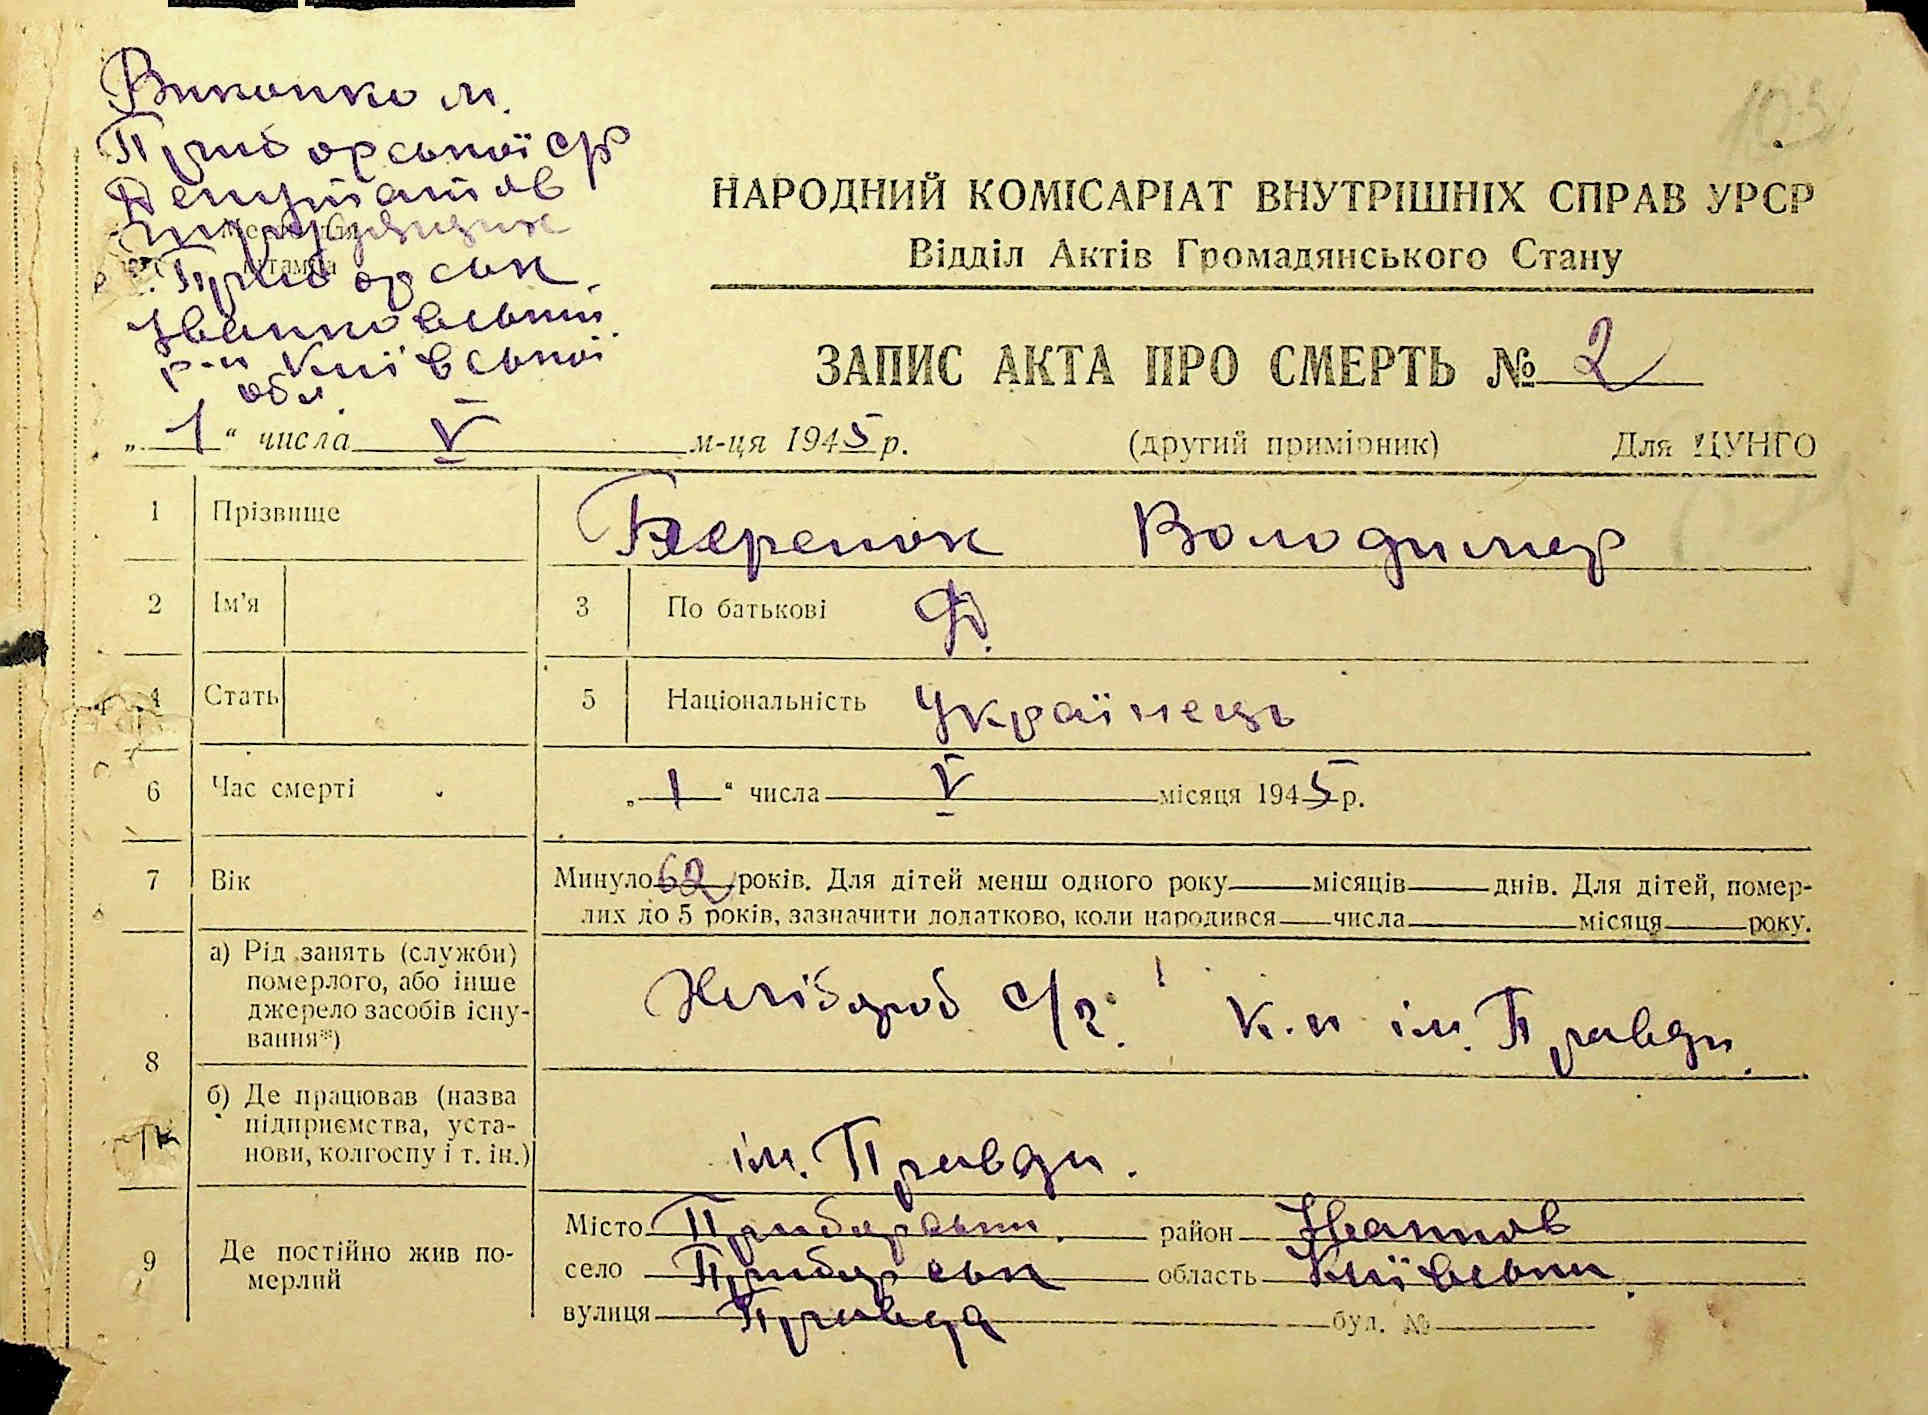 103
Виконком
Приборської с/р
Депутатів
трудящих
Місце для
штампа
с. Приборськ
Іванковський
р-н Київської
обл.
НАРОДНИЙ КОМІСАРІАТ ВНУТРІШНІХ СПРАВ УРСР
Відділ Актів Громадянського Стану
ЗАПИС АКТА ПРО СМЕРТЬ № 2
„1“ числа V м-ця 1945 р. (другий примірник) Для ЦУНГО
1 Прізвище Володимер
2 Ім’я 3 По батькові Ф.
4 Стать 5 Національність Українець
6 Час смерті „1“ числа V місяця 1945 р.
7 Вік Минуло 62 років. Для дітей менш одного року місяців днів. Для дітей, помер-
лих до 5 років, зазначити додатково, коли народився числа місяця року.
8 а) Рід занять (служби)
померлого, або інше
джерело засобів існу-
вання*)
Хлібороб с/г. к-п ім. Правди.
б) Де працював (назва
підприємства, уста-
нови, колгоспу і т. ін.)
ім. Правди.
9 Де постійно жив по-
мерлий
Місто Приборськ район Іванков
село Приборськ область Київськи
вулиця Правда буд. №